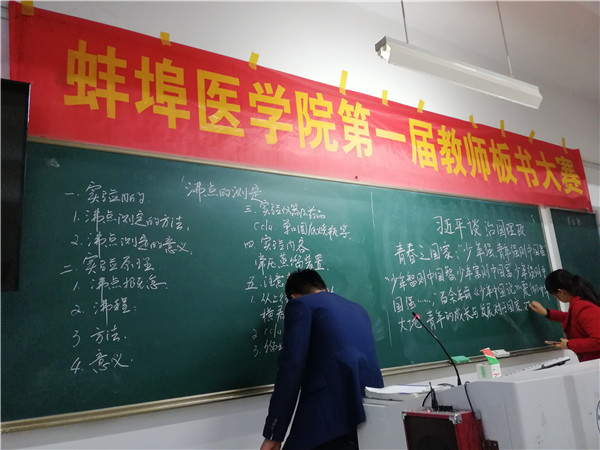 蚌埠医学院第一届教师板书大赛
沸点的测定
一、实验目的
1.沸点测定的方法.
2.沸点测定的意义.
二、实验原理
1.沸点概念
2.沸程:
3 方法.
4.意义.
三、实验仪器及药品
ccl4
四、实验内容
常压蒸馏装置.
五、
1.
2 ccl4
3.
习近平谈治国理政
青春之国家;少年强
少年智则中国智,少年富则中国富,少年强则中
国强……;百余年前
大地.青年的成长与